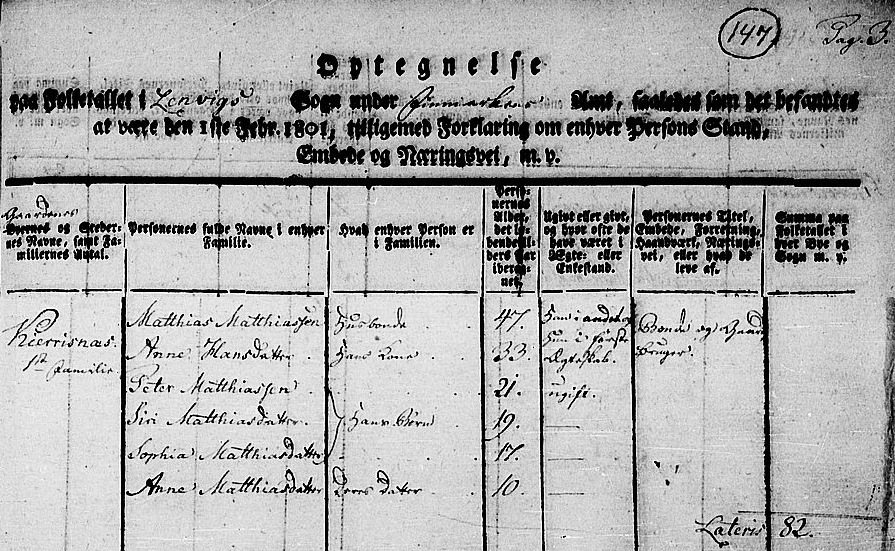 147
Pag. 3.
Optegnelse
paa Folketallet i Lenvigs Sogn under Finmarkens Amt, saaledes som det befandtes
at være den 1ste Febr. 1801, tilligemed Forklaring om enhver Persons Stand,
Embede og Næringsvei, m. v.
Gaardenes
Byernes og Steder-
nes Navne, samt Fa-
miliernes Antal.
Personernes fulde Navne i enhver
Familie.
Hvad enhver Person er
i Familien.
Perso-
nernes
Alder,
det lø-
bende Al-
ders Aar
ibereg-
net.
Ugivt eller givt,
og hvor ofte de
have været i
Ægte- eller
Enkestand.
Personernes Titel,
Embede, Forretning,
Haandværk, Nærings-
vei, eller hvad de
leve af.
Summa paa
Folketallet i
hver Bye og
Sogn m. v.
Kierrisnæs.
1st Familie
Matthias Matthiassen Husbonde 47. Han i andet og Bonde og Gaard
Anne Hansdatter Hans Kone 33. Hun i første Ægteskab. bruger.
Peter Matthiassen 21. ugift.
Siri Matthiasdatter Hans Børn 19. —
Sophia Matthiasdatter 17. —
Anne Matthiasdatter Deres datter 10. —
Lateris 82.